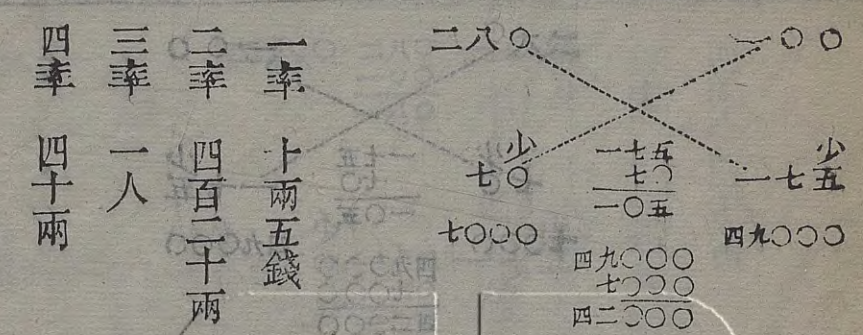 一〇〇
少
一七五
四九〇〇〇
一七五
七〇
一〇五
四九〇〇〇
七〇〇〇
四二〇〇〇
二八〇
少
七〇
七〇〇〇
一率　十兩五錢
二率　四百二十兩
三率　一人
四率　四十兩